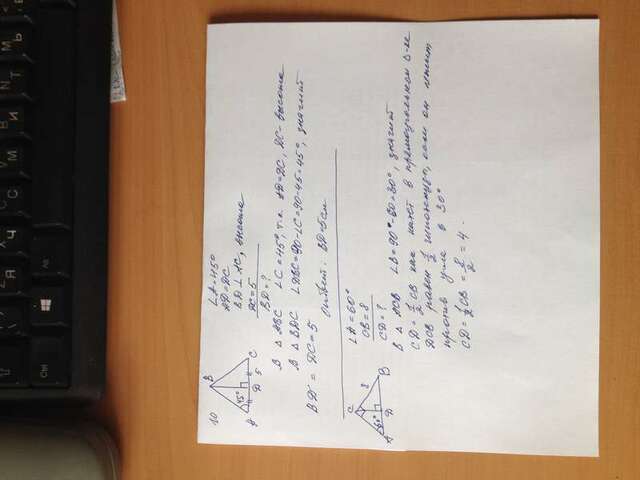 10
B
45°
A D 5 C
∠A=45°
AD=DC
BD⊥AC, высота
DC=5
BD=?
В △ ABC ∠C=45°, т.к. AD=DC, DC-высота
В △ BDC ∠DBC=90-∠C=90-45=45°, значит
BD = DC=5
Ответ: BD=5см
C
8
60°
A D B
∠A=60°
CB=8
CD=?
В △ ACB ∠B=90°-60=30°, значит
CD=1/2CB как катет в прямоугольном △-ке
DCB равен 1/2 гипотенузы, если он лежит
против угла в 30°
CD=1/2CB=8/2=4.
Ctrl
Alt
Я
Ч
С
М
И
Т